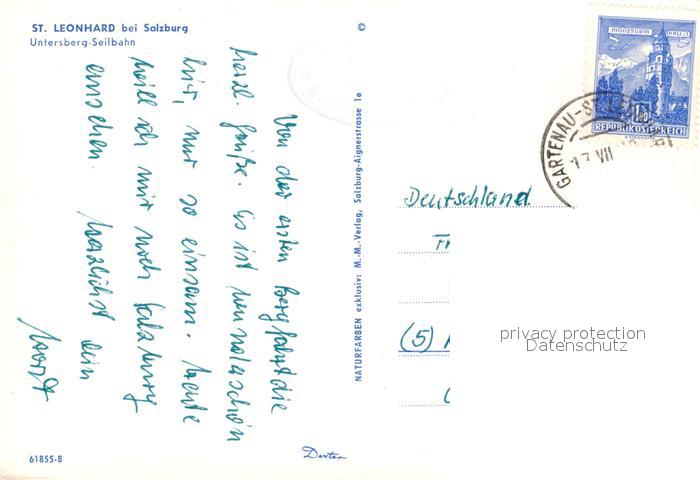 ST. LEONHARD bei Salzburg
Untersberg-Seilbahn
©
Von der ersten Bergfahrt die
herzl. Grüße. Es ist wunderschön
hier, nur so einsam. Heute
will ich mir noch Salzburg
ansehen. Herzlichst Dein
Horst
NATURFARBEN exklusiv: M.-M.-Verlag, Salzburg-Aignerstrasse 1a
MÜNZTURM HALL i. T.
REPUBLIK ÖSTERREICH
GARTENAU-ST. LEONHARD
17 VII
Deutschland
(5)
privacy protection
Datenschutz
61855-B